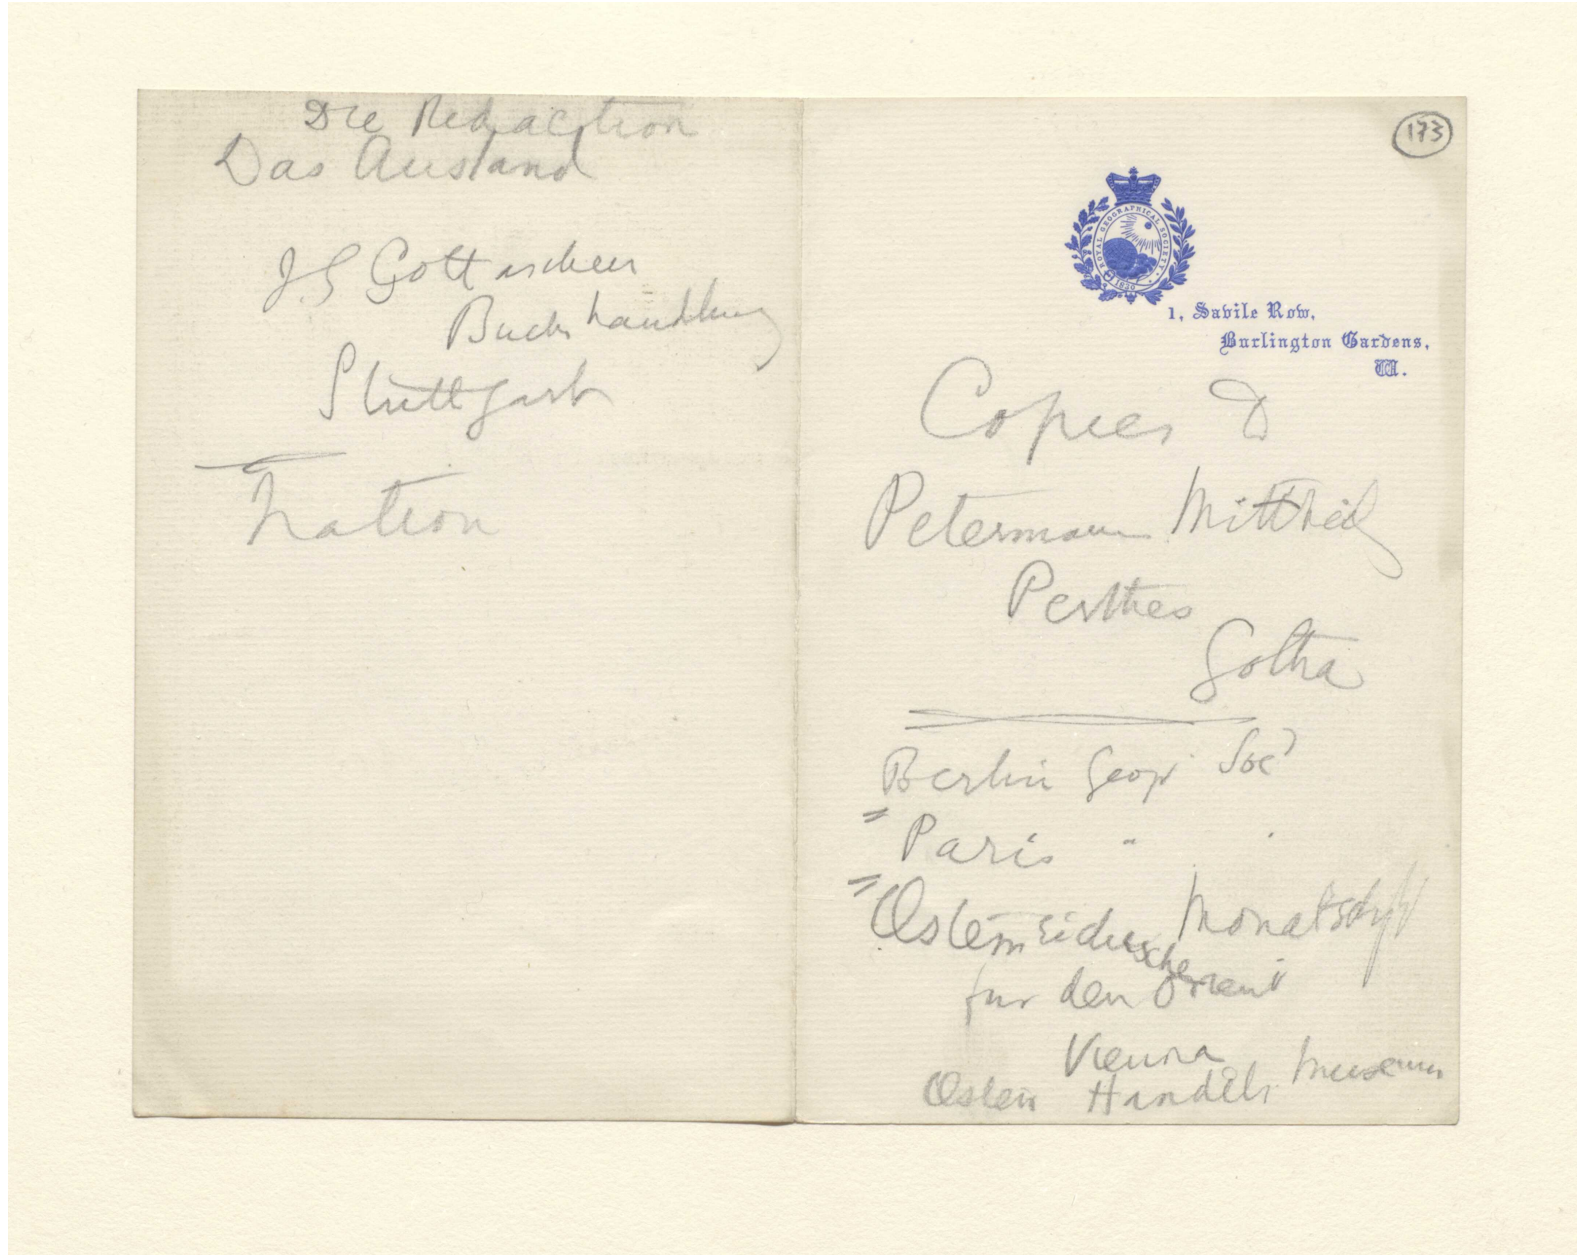 Die Redaction
Das Ausland
J G Cottaschen
Buchhandlung
Stuttgart
Nation
173
ROYAL GEOGRAPHICAL SOCIETY
1830
1, Savile Row,
Burlington Gardens,
W.
Copies
Petermann Mittheil
Perthes
Gotha
Berlin Geogr Soc
" Paris "
" Osterreichischer Monatschft
fur den Orient
Vienna
Osterr Handels Museum